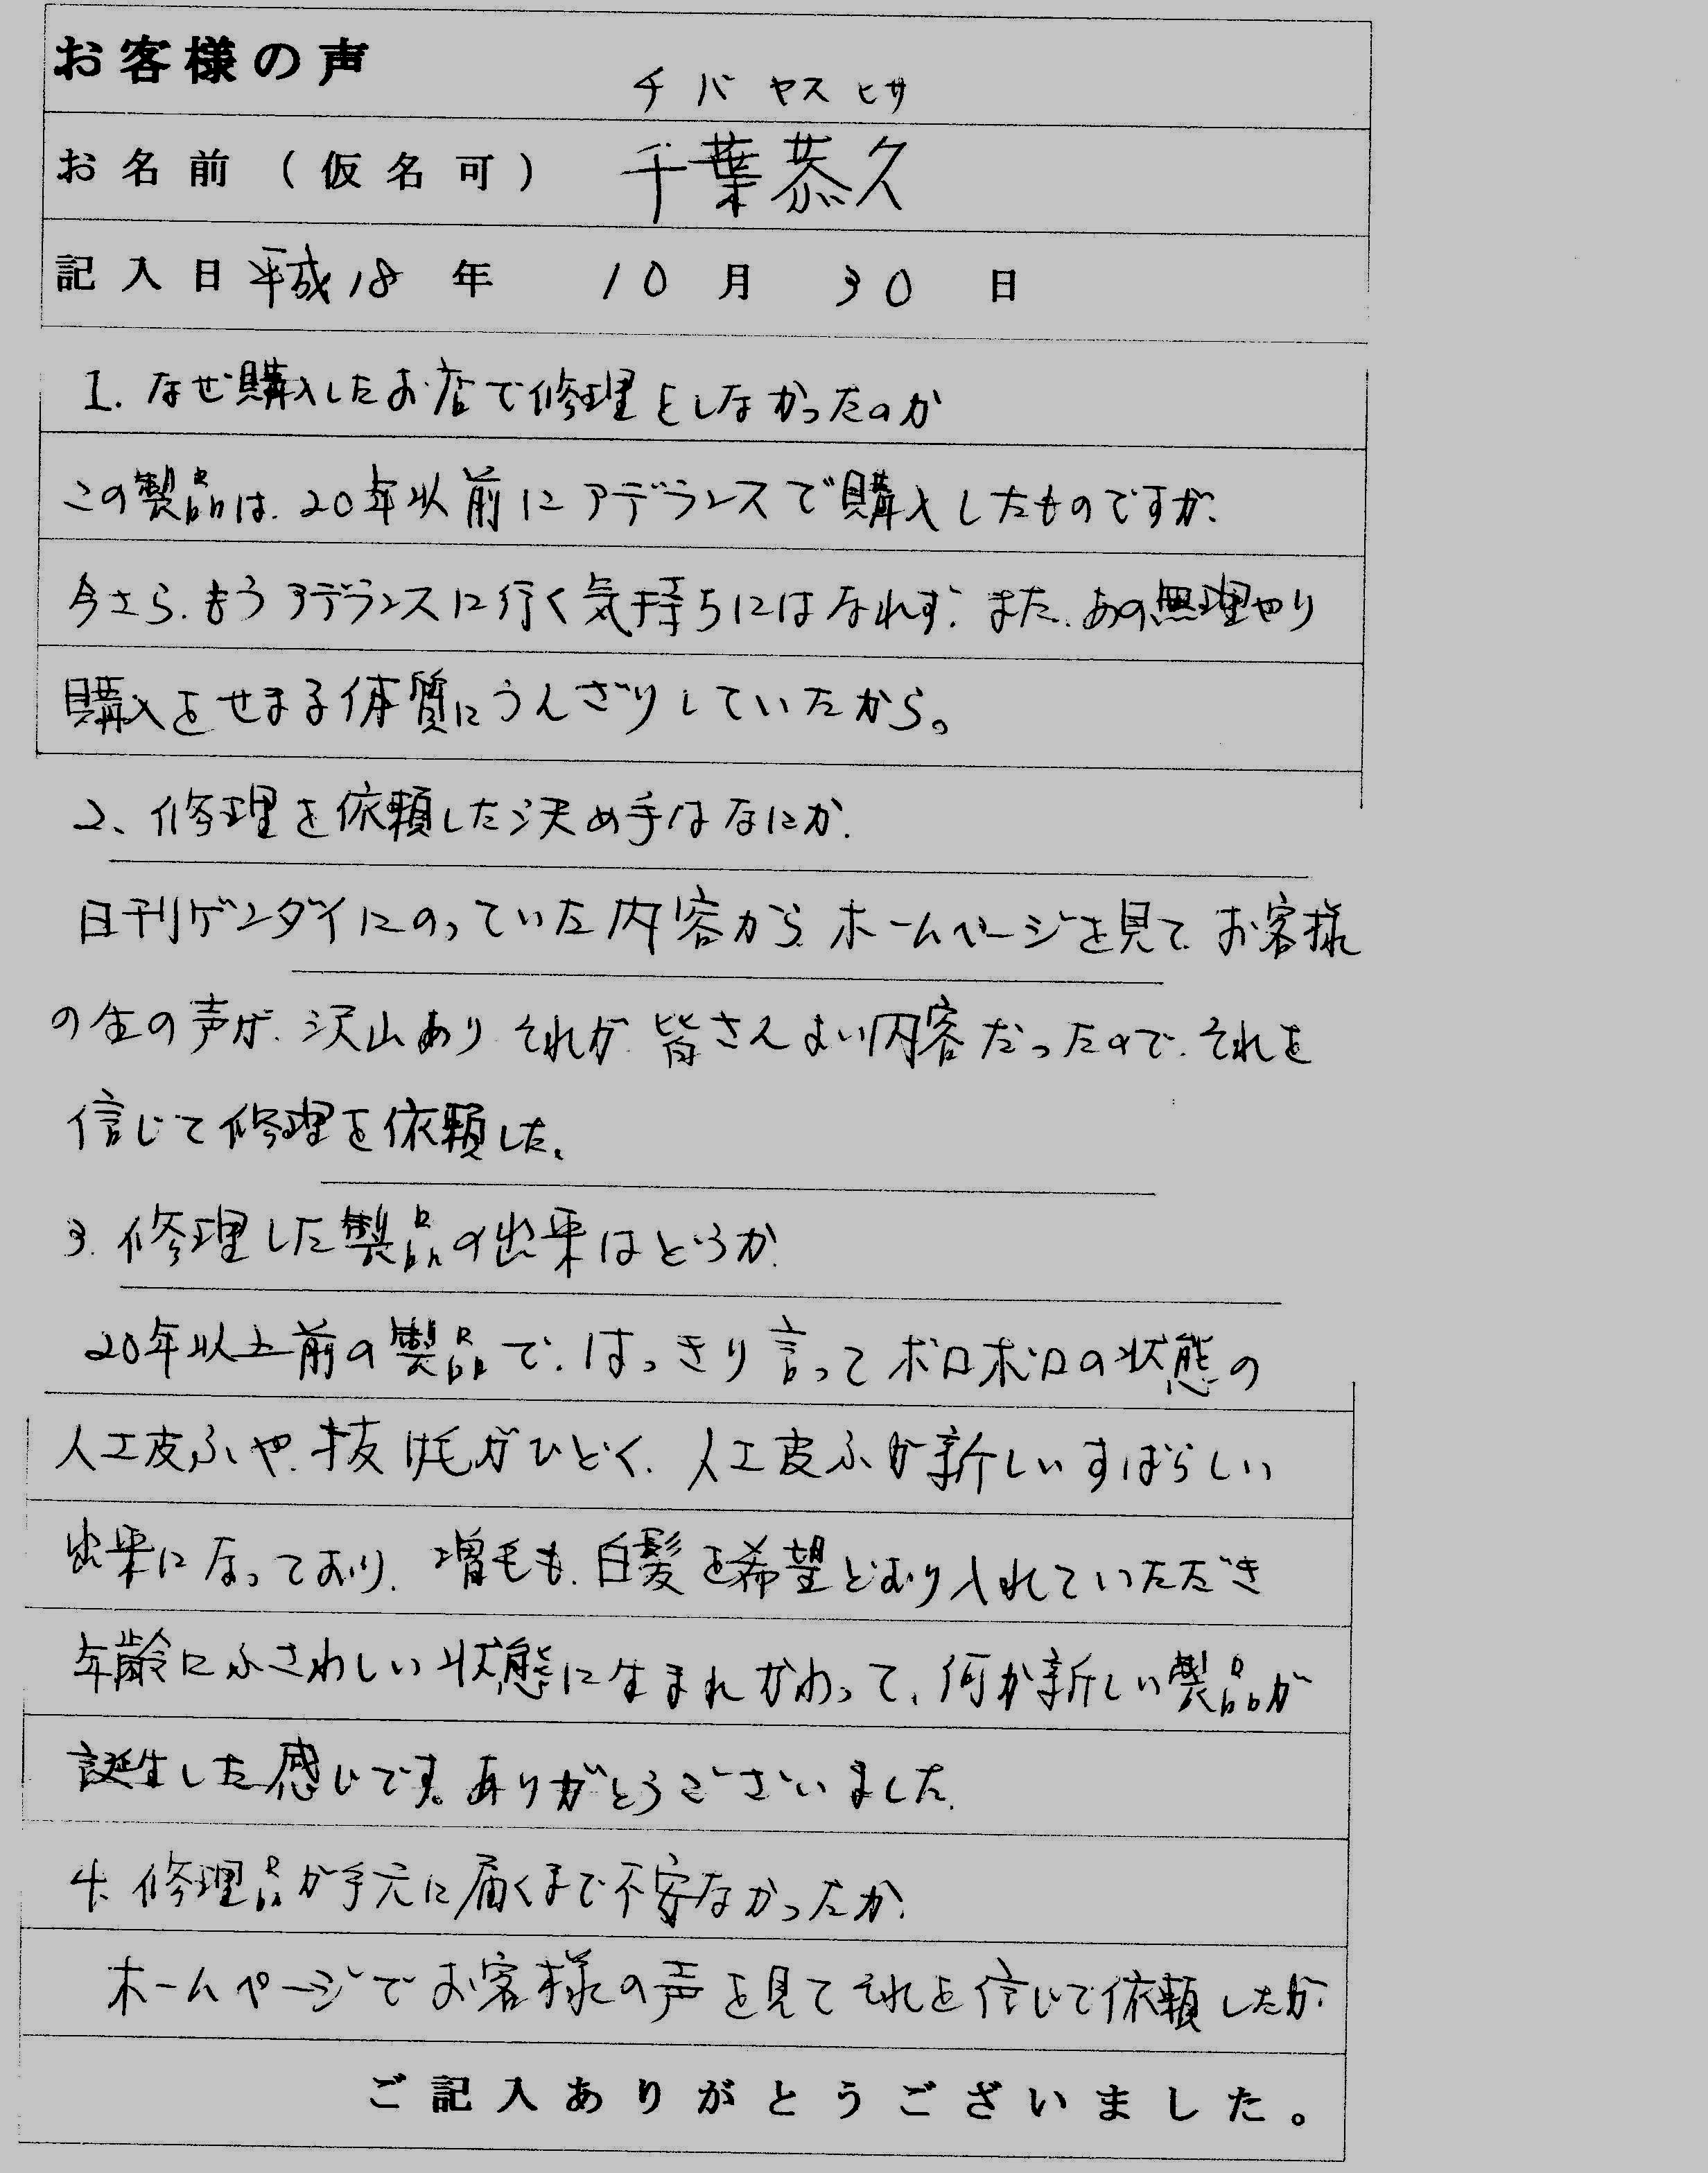 お客様の声
チバ ヤスヒサ
お名前(仮名可) 千葉恭久
記入日 平成18年 10月 30日
1. なぜ購入したお店で修理をしなかったのか
この製品は、20年以前にアデランスで購入したものですが、
今さら、もうアデランスに行く気持ちにはなれず、また、あの無理やり
購入をせまる体質にうんざりしていたから。
2、修理を依頼した決め手はなにか.
日刊ゲンダイにのっていた内容から、ホームページを見て、お客様
の生の声が、沢山あり、それが、皆さんよい内容だったので、それを
信じて修理を依頼した。
3. 修理した製品の出来はどうか.
20年以上前の製品で、はっきり言ってボロボロの状態の
人工皮ふや、抜け毛がひどく、人工皮ふが新しいすばらしい
出来になっており、増毛も、白髪を希望どおり入れていただき
年齢にふさわしい状態に生まれかわって、何か新しい製品が
誕生した感じです。ありがとうございました.
4. 修理品が手元に届くまで不安なかったか.
ホームページでお客様の声を見てそれを信じて依頼したが.
ご記入ありがとうございました。